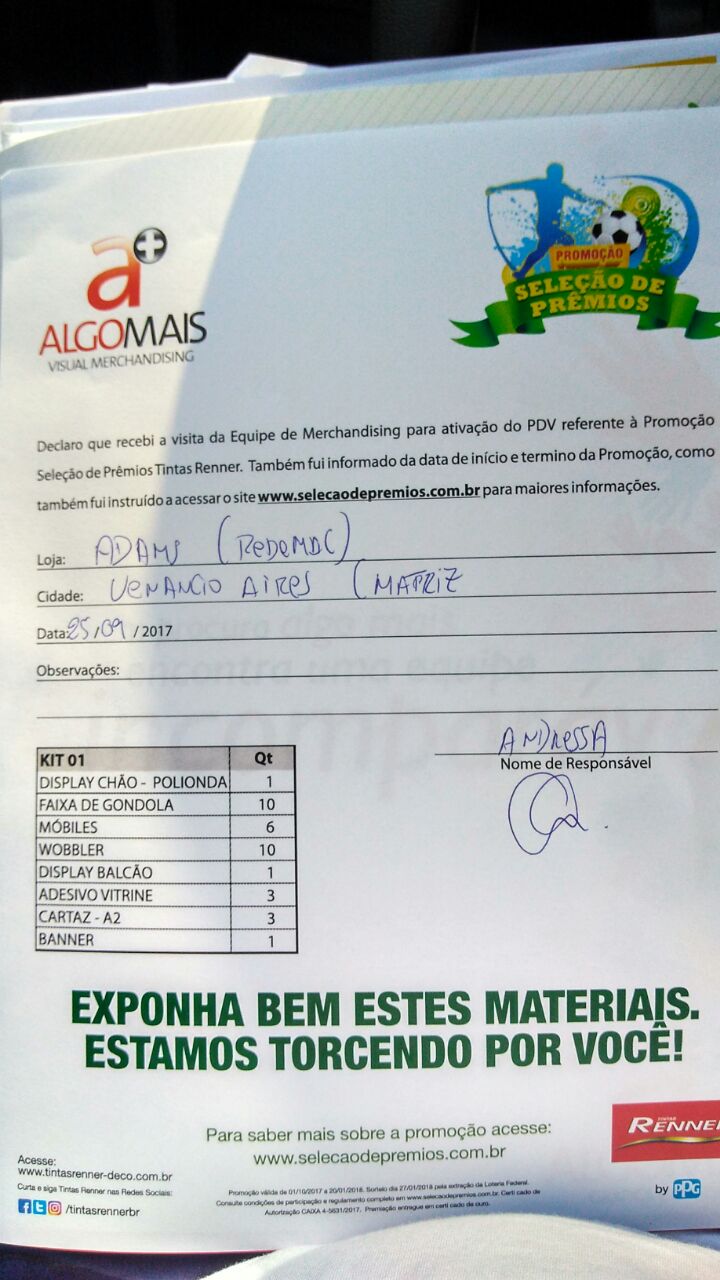 a+
ALGOMAIS
VISUAL MERCHANDISING
PROMOÇÃO
SELEÇÃO DE
PRÊMIOS
Declaro que recebi a visita da Equipe de Merchandising para ativação do PDV referente à Promoção
Seleção de Prêmios Tintas Renner. Também fui informado da data de início e termino da Promoção, como
também fui instruído a acessar o site www.selecaodepremios.com.br para maiores informações.
Loja: ADAMS (REDEMAC)
Cidade: VENANCIO AIRES (MATRIZ
Data: 25/09 / 2017
Observações:
ANDRESSA
Nome de Responsável
KIT 01 Qt
DISPLAY CHÃO - POLIONDA 1
FAIXA DE GONDOLA 10
MÓBILES 6
WOBBLER 10
DISPLAY BALCÃO 1
ADESIVO VITRINE 3
CARTAZ - A2 3
BANNER 1
EXPONHA BEM ESTES MATERIAIS.
ESTAMOS TORCENDO POR VOCÊ!
Para saber mais sobre a promoção acesse:
www.selecaodepremios.com.br
TINTAS
RENNER
by PPG
Acesse:
www.tintasrenner-deco.com.br
Curta e siga Tintas Renner nas Redes Sociais:
/tintasrennerbr
Promoção válida de 01/10/2017 a 20/01/2018. Sorteio dia 27/01/2018 pela extração da Loteria Federal.
Consulte condições de participação e regulamento completo em www.selecaodepremios.com.br. Certi cado de
Autorização CAIXA 4-5631/2017. Premiação entregue em certi cado de ouro.